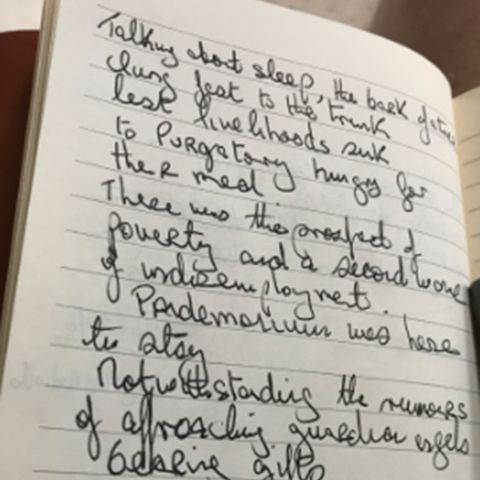 Talking about sleep, the bark of tree
clung fast to the trunk
lest livelihoods sunk
to Purgatory hungry for
their meal
There was the prospect of
poverty and a second wave
of undisemployment.
Pandemonium was here
to stay
Notwithstanding the rumours
of approaching guardian angels
bearing gifts